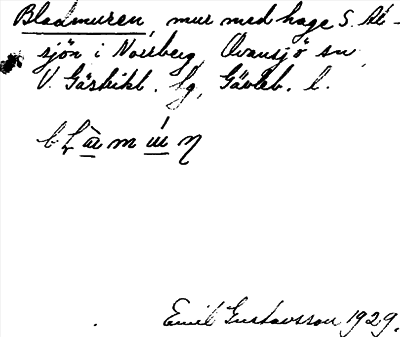 Bladmuren, mur med hage S. At-
sjön i Norrberg, Ovansjö sn
V. Gästrikl. fg, Gävleb. l.
Emil Gustavsson 1929.